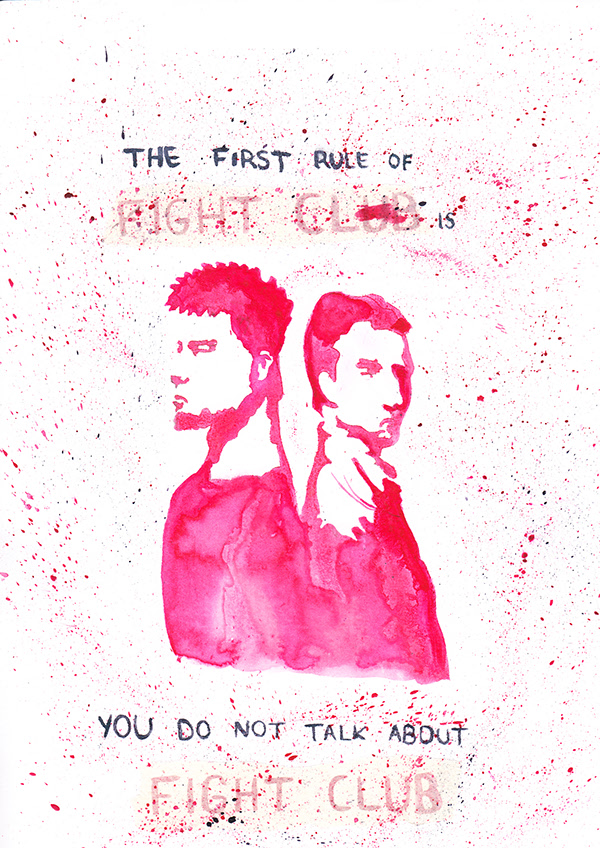 THE FIRST RULE OF
FIGHT CLUB IS
YOU DO NOT TALK ABOUT
FIGHT CLUB